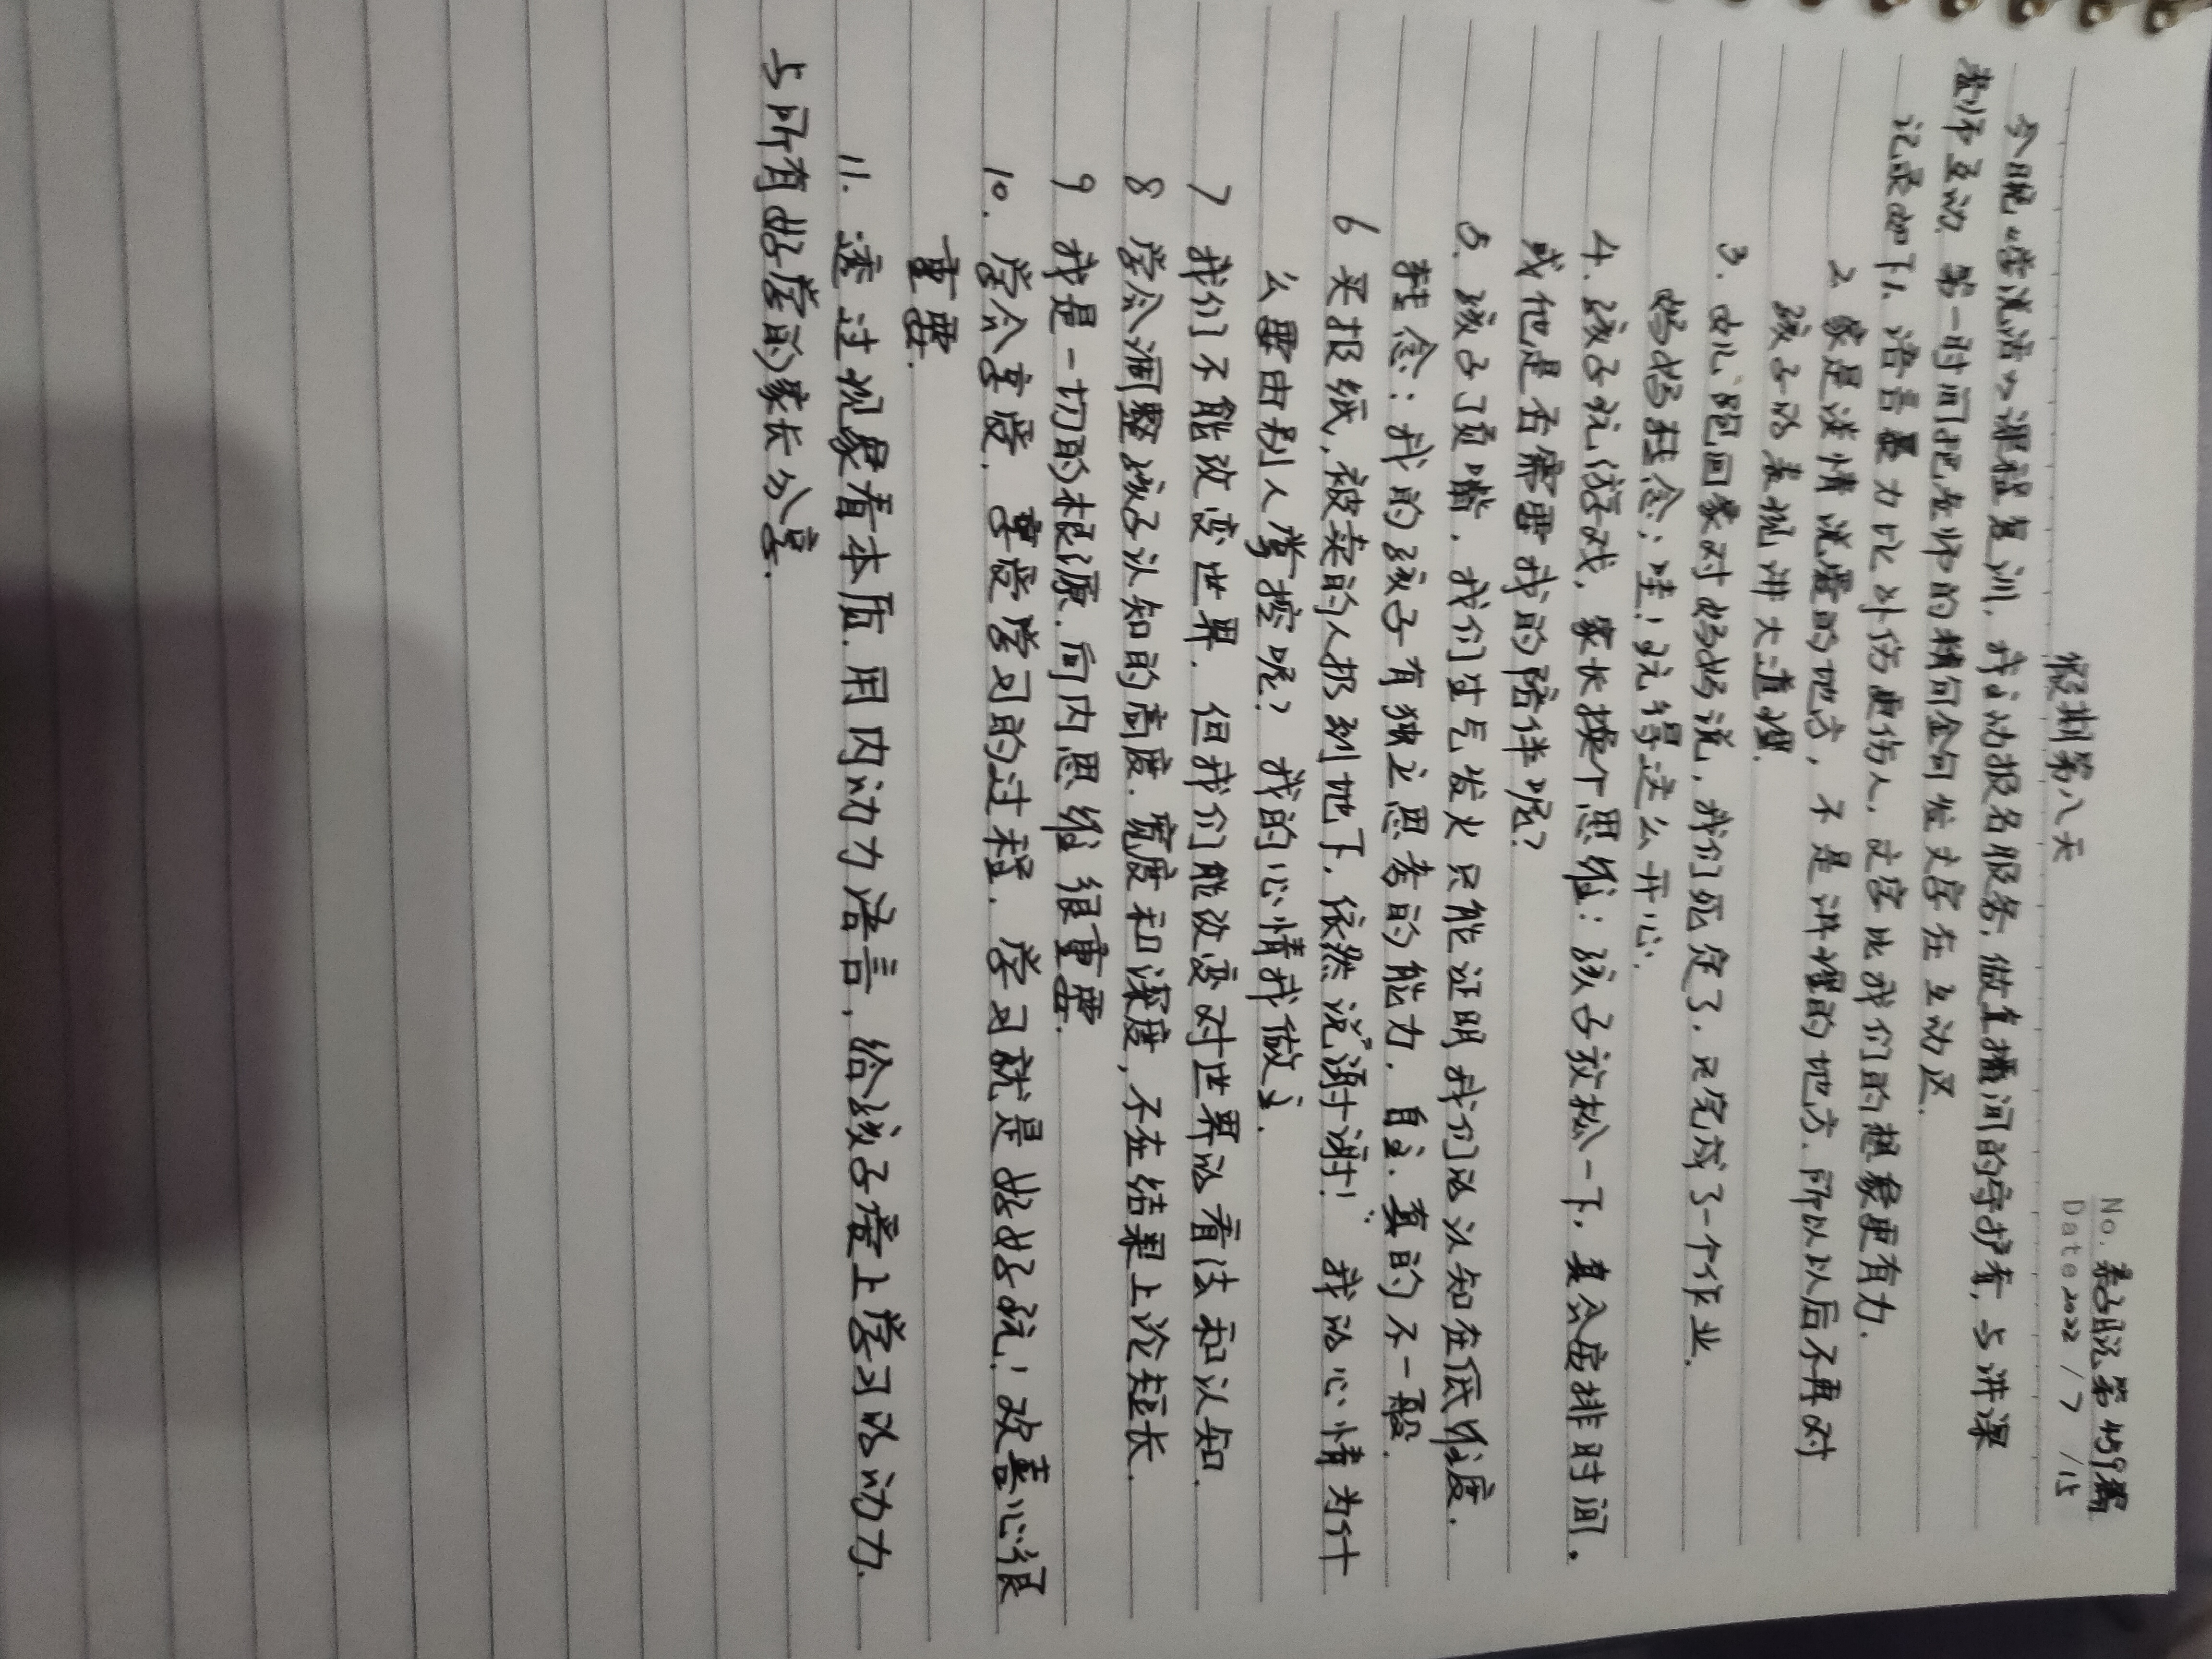 No. 亲子日记第459篇
Date 2022 / 7 / 15
假期第八天
今晚“会说话”课程复训，我主动报名服务，做直播间的守护者，与讲课
老师互动，第一时间把老师的精句金句发文字在互动区.
记录如下1. 语言暴力比刀伤更伤人，文字比我们的想象更有力.
2 家是谈情说爱的地方，不是讲理的地方.所以以后不再对
孩子的表现讲大道理.
3. 女儿跑回家对妈妈说，我们死定了，只完成了一个作业.
妈妈转念：哇！玩得这么开心.
4. 孩子玩游戏，家长换个思维：孩子放松一下，真会安排时间，
或他是否需要我的陪伴呢？
5. 孩子顶嘴，我们生气发火只能证明我们的认知在低维度，
转念：我的孩子有独立思考的能力.自主.真的不一般.
6 买报纸，被卖的人扔到地下，依然说“谢谢！” 我的心情为什
么要由别人掌控呢？我的心情我做主.
7 我们不能改变世界.但我们能改变对世界的看法和认知.
8 学会调整孩子认知的高度.宽度和深度，不在结果上论短长.
9 我是一切的根源.向内思维很重要.
10. 学会享受.享受学习的过程.学习就是好好玩！改善心很
重要.
11. 透过现象看本质.用内动力语言，给孩子爱上学习的动力.
与所有好学的家长分享.